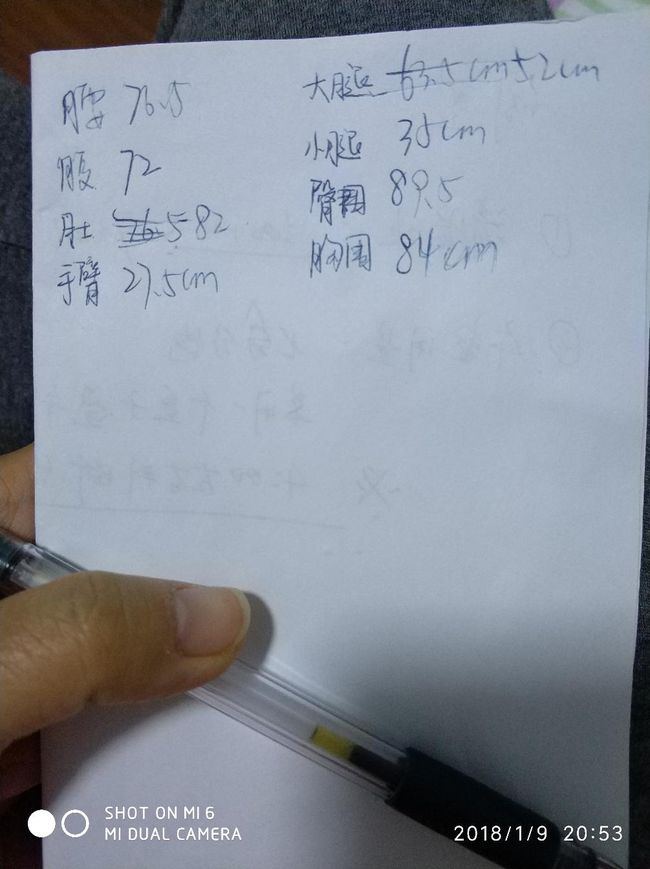 腰 76.5
腹 72
肚 82
手臂 27.5cm
大腿 63.5cm 52cm
小腿 35cm
臀围 89.5
胸围 84cm
SHOT ON MI 6
MI DUAL CAMERA
2018/1/9 20:53